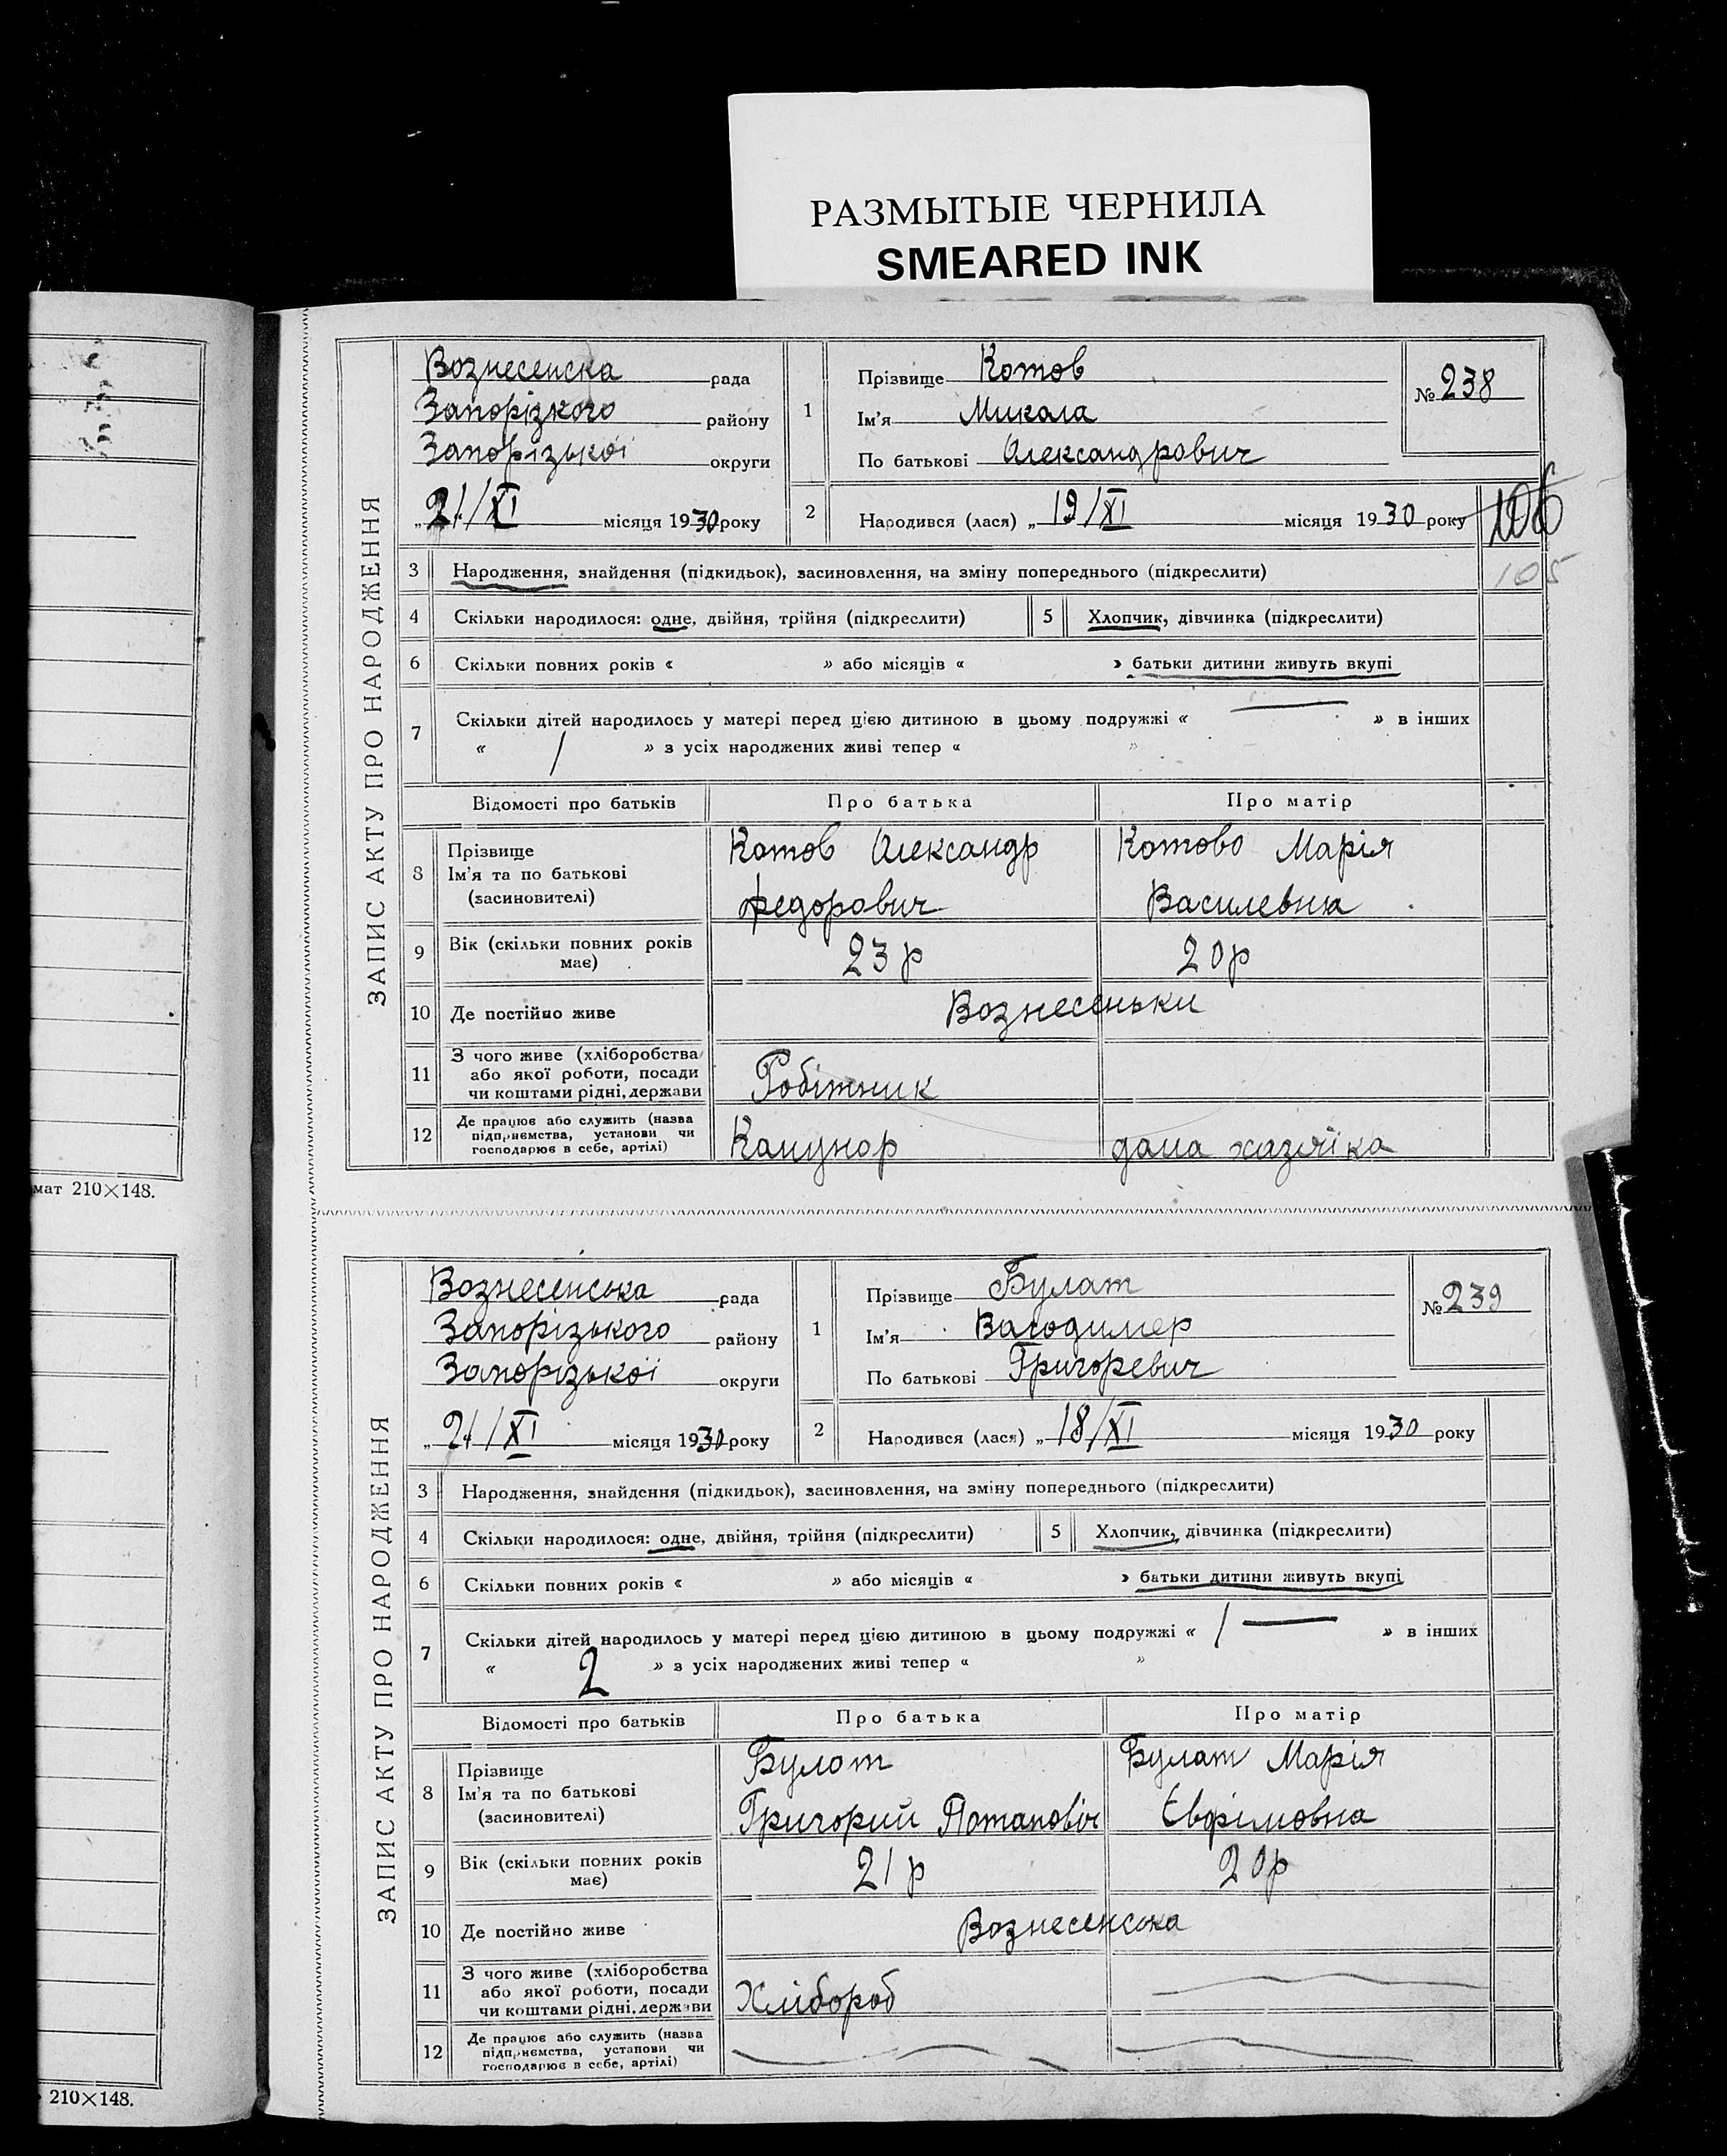 РАЗМЫТЫЕ ЧЕРНИЛА
SMEARED INK
ЗАПИС АКТУ ПРО НАРОДЖЕННЯ
Вознесенска рада
Запорізкого району
Запорізької округи
„21/XI місяця 1930 року
1
Прізвище Котов
Ім'я Микола
По батькові Олександрович
№ 238
2
Народився (лася) „19/XI місяця 1930 року
106
105
3 Народження, знайдення (підкидьок), засиновлення, на зміну попереднього (підкреслити)
4 Скільки народилося: одне, двійня, трійня (підкреслити) 5 Хлопчик, дівчинка (підкреслити)
6 Скільки повних років « » або місяців « » батьки дитини живуть вкупі
7 Скільки дітей народилось у матері перед цією дитиною в цьому подружжі « — » в інших
« 1 » з усіх народжених живі тепер « »
Відомості про батьків Про батька Про матір
8 Прізвище
Ім'я та по батькові
(засиновителі)
Котов Олександр
Федорович
Котово Марія
Василевна
9 Вік (скільки повних років
має)
23 р
20 р
10 Де постійно живе Вознесеньки
11 З чого живе (хліборобства
або якої роботи, посади
чи коштами рідні, держави
Робітник
12 Де працює або служить (назва
підприємства, установи чи
господарює в себе, артілі)
дома хазяїка
мат 210×148.
ЗАПИС АКТУ ПРО НАРОДЖЕННЯ
Вознесенська рада
Запорізького району
Запорізької округи
„21/XI місяця 1930 року
1
Прізвище Булат
Ім'я Володимер
По батькові Григоревич
№ 239
2
Народився (лася) „18/XI місяця 1930 року
3 Народження, знайдення (підкидьок), засиновлення, на зміну попереднього (підкреслити)
4 Скільки народилося: одне, двійня, трійня (підкреслити) 5 Хлопчик, дівчинка (підкреслити)
6 Скільки повних років « » або місяців « » батьки дитини живуть вкупі
7 Скільки дітей народилось у матері перед цією дитиною в цьому подружжі « 1 — » в інших
« 2 » з усіх народжених живі тепер « »
Відомості про батьків Про батька Про матір
8 Прізвище
Ім'я та по батькові
(засиновителі)
Булот
Григорий Потаповіч
Булат Марія
Євфімовна
9 Вік (скільки повних років
має)
21 р
20р
10 Де постійно живе Вознесенська
11 З чого живе (хліборобства
або якої роботи, посади
чи коштами рідні, держави
Хлібороб
12 Де працює або служить (назва
підприємства, установи чи
господарює в себе, артілі)
210×148.